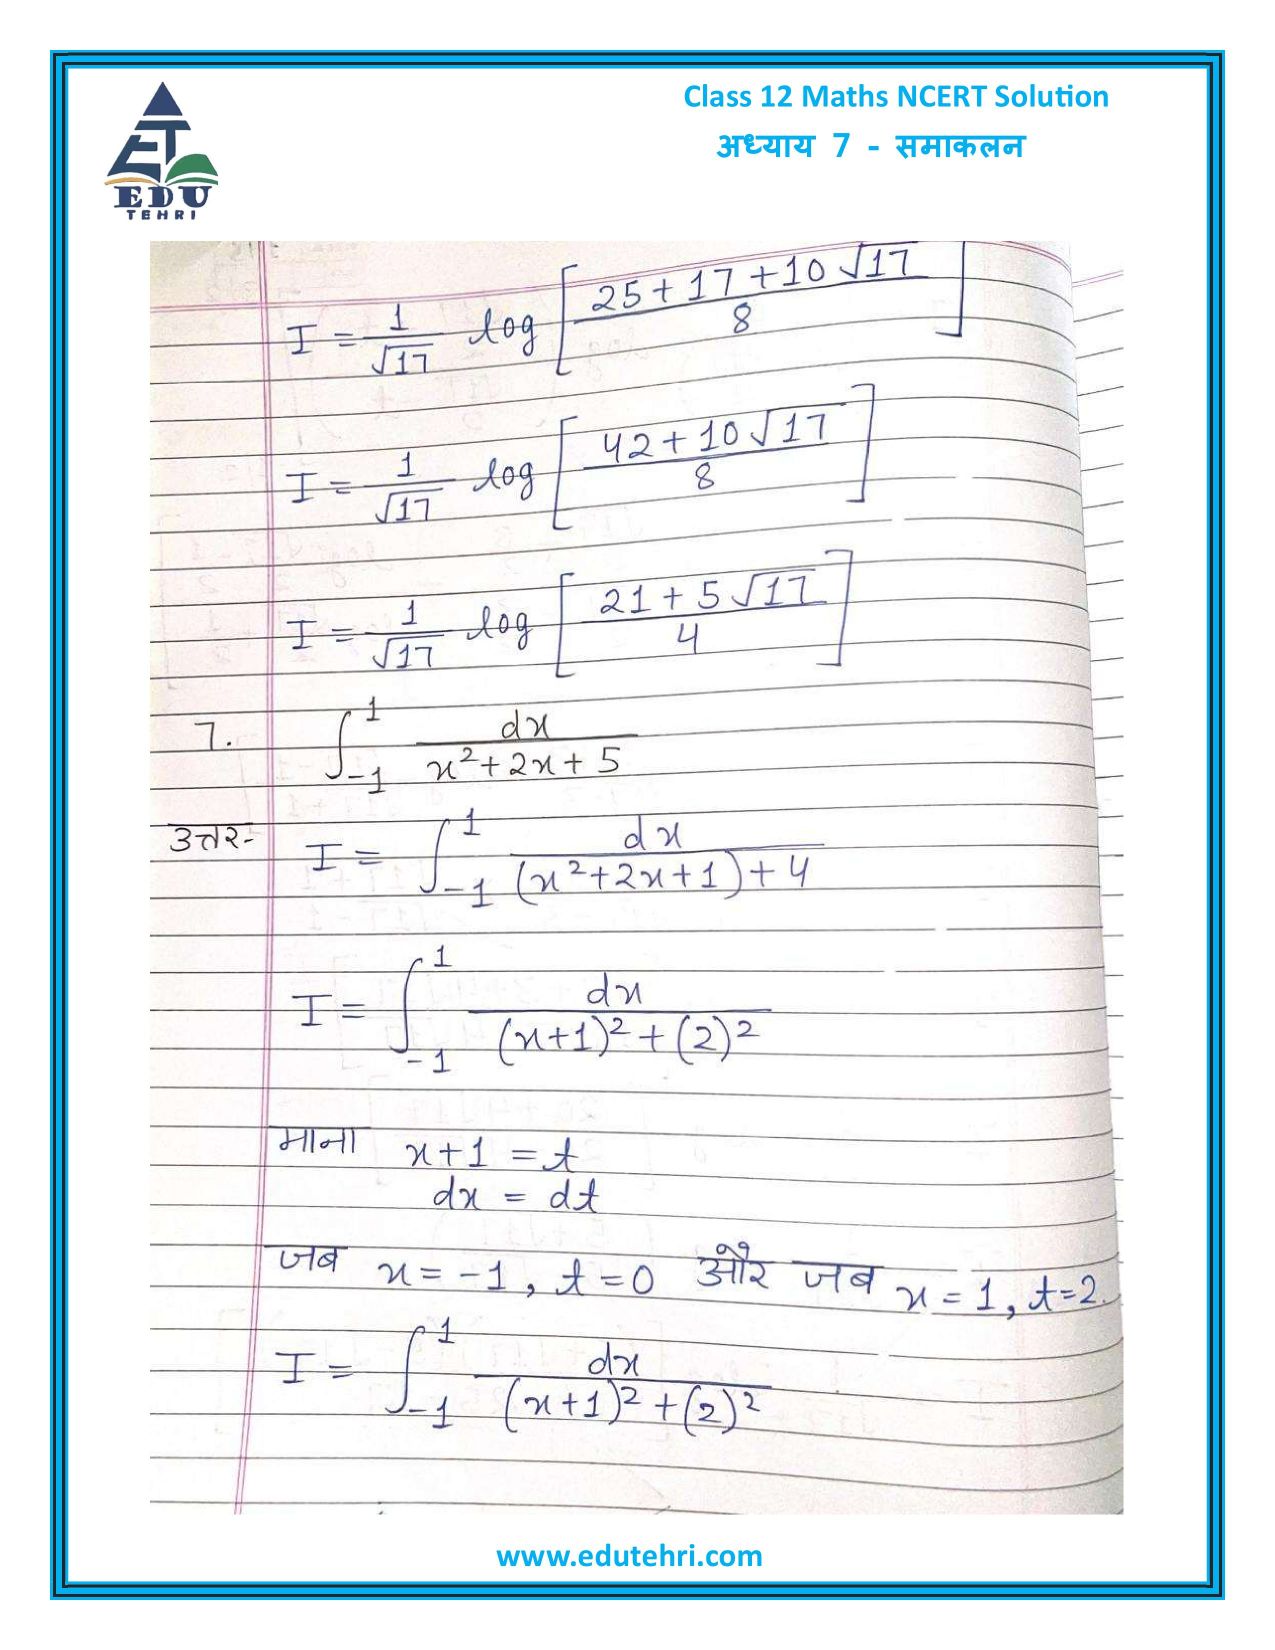 Class 12 Maths NCERT Solution
अध्याय 7 - समाकलन
ET
EDU
TEHRI
I = 1/√17 log [25+17+10√17 / 8]
I = 1/√17 log [42+10√17 / 8]
I = 1/√17 log [21+5√17 / 4]
7. ∫_{-1}^{1} dx / x²+2x+5
उत्तर- I = ∫_{-1}^{1} dx / (x²+2x+1)+4
I = ∫_{-1}^{1} dx / (x+1)²+(2)²
माना x+1 = t
dx = dt
जब x = -1, t = 0 और जब x = 1, t = 2.
I = ∫_{-1}^{1} dx / (x+1)²+(2)²
www.edutehri.com